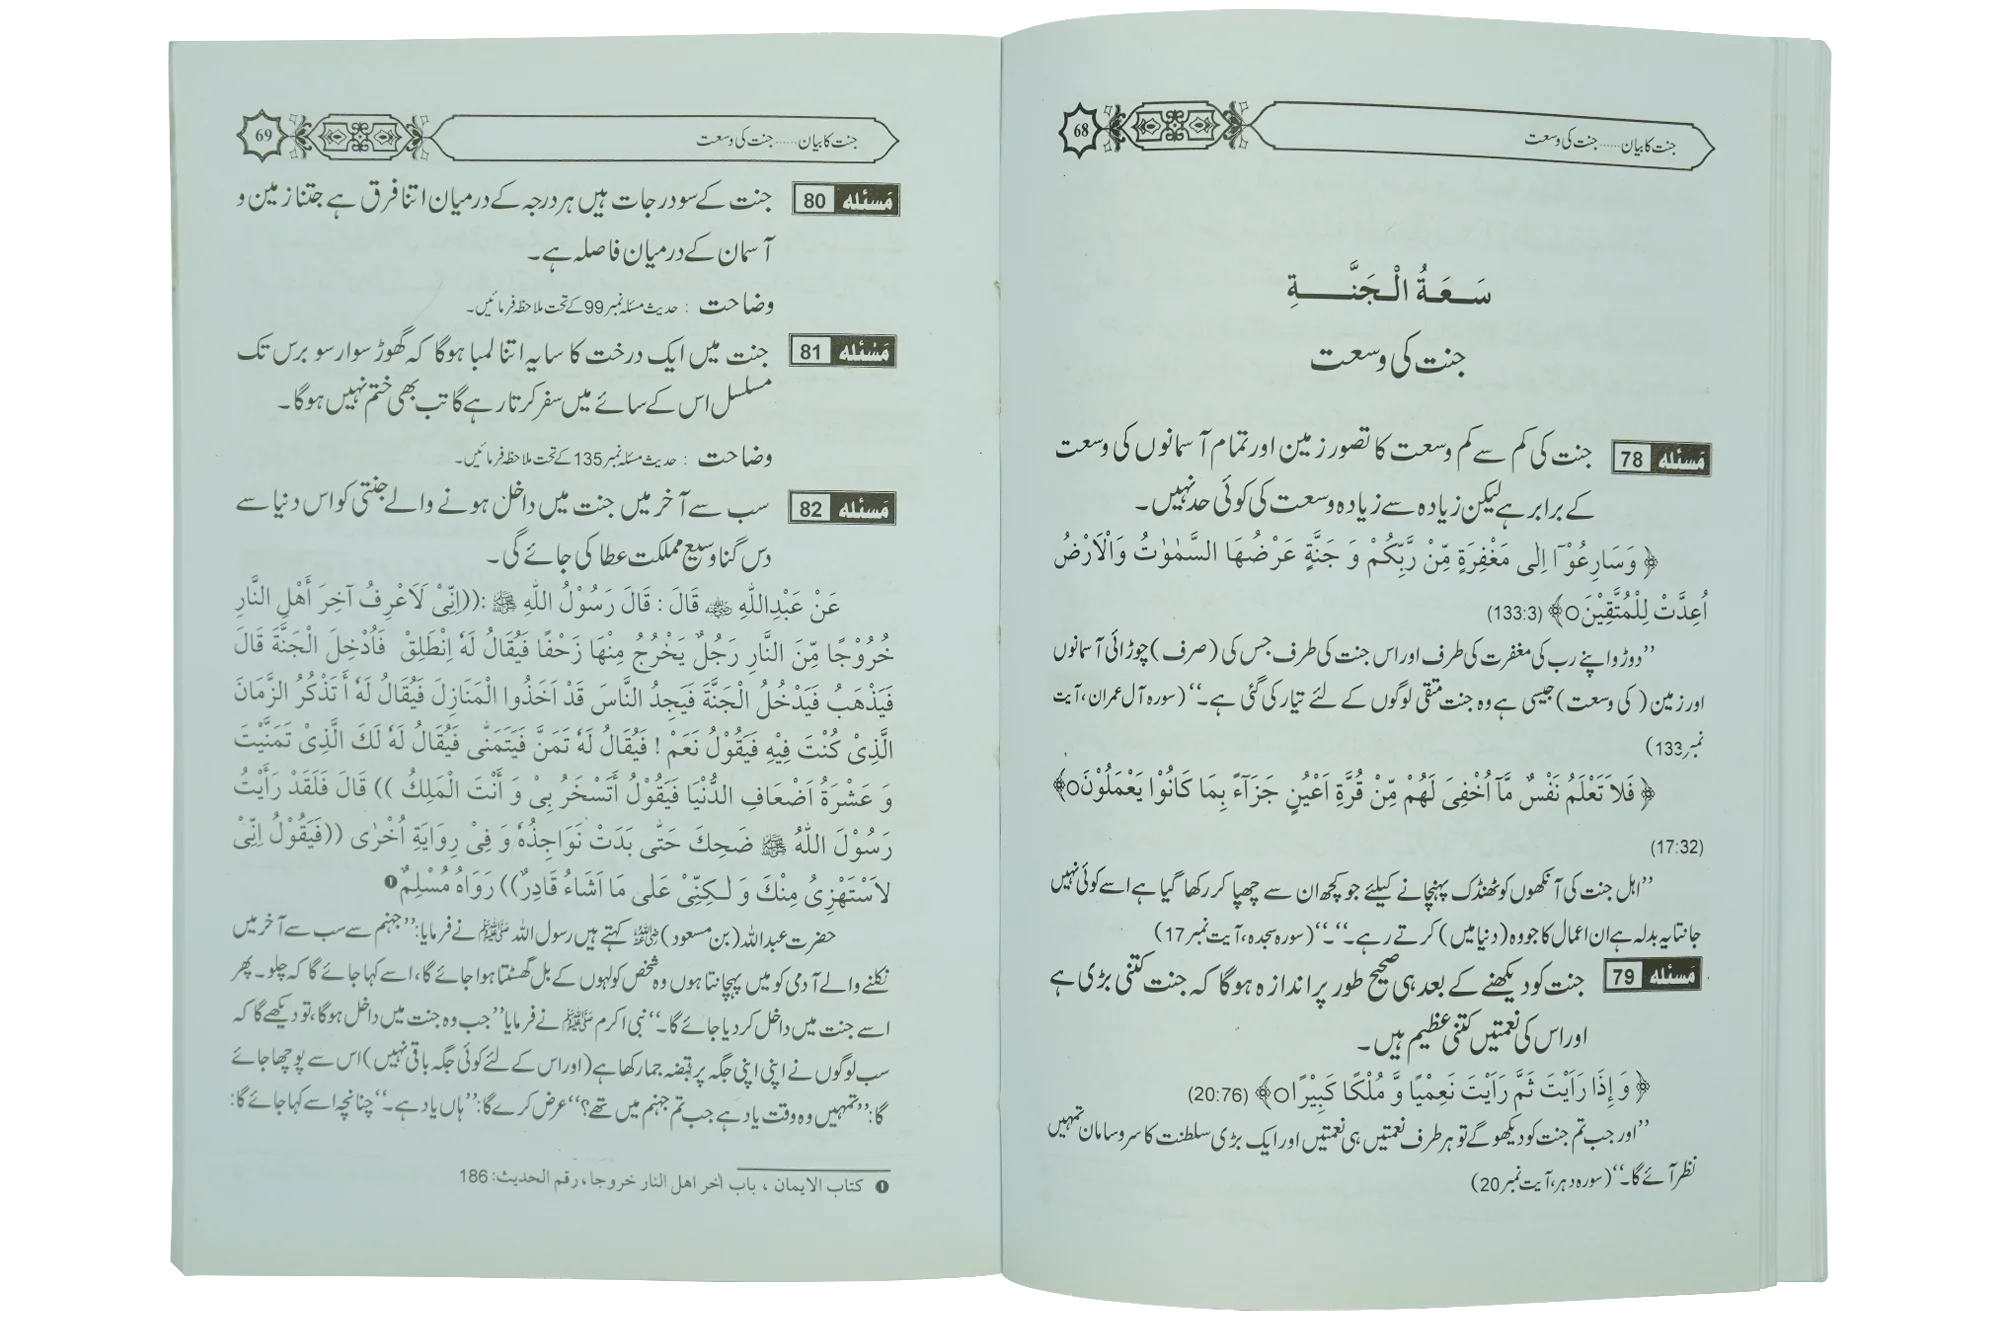 جنت کا بیان ...... جنت کی وسعت
68
سَعَةُ الْجَنَّةِ
جنت کی وسعت
مَسئله 78 جنت کی کم سے کم وسعت کا تصور زمین اور تمام آسمانوں کی وسعت
کے برابر ہے لیکن زیادہ سے زیادہ وسعت کی کوئی حد نہیں۔
﴿ وَسَارِعُوْآ اِلٰى مَغْفِرَةٍ مِّنْ رَّبِّكُمْ وَ جَنَّةٍ عَرْضُهَا السَّمٰوٰتُ وَالْاَرْضُ
اُعِدَّتْ لِلْمُتَّقِيْنَ○﴾ (133:3)
’’دوڑو اپنے رب کی مغفرت کی طرف اور اس جنت کی طرف جس کی (صرف) چوڑائی آسمانوں
اور زمین (کی وسعت) جیسی ہے وہ جنت متقی لوگوں کے لئے تیار کی گئی ہے۔‘‘ (سورہ آل عمران، آیت
نمبر 133)
﴿ فَلاَ تَعْلَمُ نَفْسٌ مَّآ اُخْفِىَ لَهُمْ مِّنْ قُرَّةِ اَعْيُنٍ جَزَآءً بِمَا كَانُوْا يَعْمَلُوْنَ○﴾
(17:32)
’’اہل جنت کی آنکھوں کو ٹھنڈک پہنچانے کیلئے جو کچھ ان سے چھپا کر رکھا گیا ہے اسے کوئی نہیں
جانتا یہ بدلہ ہے ان اعمال کا جو وہ (دنیا میں) کرتے رہے۔‘‘۔‘‘ (سورہ سجدہ، آیت نمبر 17)
مَسئله 79 جنت کو دیکھنے کے بعد ہی صحیح طور پر اندازہ ہوگا کہ جنت کتنی بڑی ہے
اور اس کی نعمتیں کتنی عظیم ہیں۔
﴿ وَ اِذَا رَاَيْتَ ثَمَّ رَاَيْتَ نَعِمْيًا وَّ مُلْكًا كَبِيْرًا○﴾ (20:76)
’’اور جب تم جنت کو دیکھو گے تو ہر طرف نعمتیں ہی نعمتیں اور ایک بڑی سلطنت کا سر و سامان تمہیں
نظر آئے گا۔‘‘ (سورہ دہر، آیت نمبر 20)
جنت کا بیان ...... جنت کی وسعت
69
مَسئله 80 جنت کے سو درجات ہیں ہر درجہ کے درمیان اتنا فرق ہے جتنا زمین و
آسمان کے درمیان فاصلہ ہے۔
وضاحت : حدیث مسئلہ نمبر 99 کے تحت ملاحظہ فرمائیں۔
مَسئله 81 جنت میں ایک درخت کا سایہ اتنا لمبا ہوگا کہ گھوڑ سوار سو برس تک
مسلسل اس کے سائے میں سفر کرتا رہے گا تب بھی ختم نہیں ہوگا۔
وضاحت : حدیث مسئلہ نمبر 135 کے تحت ملاحظہ فرمائیں۔
مَسئله 82 سب سے آخر میں جنت میں داخل ہونے والے جنتی کو اس دنیا سے
دس گنا وسیع مملکت عطا کی جائے گی۔
عَنْ عَبْدِاللّٰهِ ؓ قَالَ : قَالَ رَسُوْلُ اللّٰهِ ﷺ :((اِنِّىْ لَاَعْرِفُ آخِرَ أَهْلِ النَّارِ
خُرُوْجًا مِّنَ النَّارِ رَجُلٌ يَخْرُجُ مِنْهَا زَحْفًا فَيُقَالُ لَهٗ اِنْطَلِقْ فَاُدْخِلَ الْجَنَّةَ قَالَ
فَيَذْهَبُ فَيَدْخُلُ الْجَنَّةَ فَيَجِدُ النَّاسَ قَدْ اَخَذُوا الْمَنَازِلَ فَيُقَالُ لَهٗ أَ تَذْكُرُ الزَّمَانَ
الَّذِىْ كُنْتَ فِيْهِ فَيَقُوْلُ نَعَمْ ! فَيُقَالُ لَهٗ تَمَنَّ فَيَتَمَنّٰى فَيُقَالُ لَهٗ لَكَ الَّذِىْ تَمَنَّيْتَ
وَ عَشْرَةُ اَضْعَافِ الدُّنْيَا فَيَقُوْلُ أَتَسْخَرُ بِىْ وَ أَنْتَ الْمَلِكُ )) قَالَ فَلَقَدْ رَأَيْتُ
رَسُوْلَ اللّٰهُ ﷺ ضَحِكَ حَتّٰى بَدَتْ نَوَاجِذُهٗ وَ فِىْ رِوَايَةِ اُخْرٰى ((فَيَقُوْلُ اِنِّىْ
لاَ سْتَهْزِئُ مِنْكَ وَ لٰكِنِّىْ عَلٰى مَا اَشَاءُ قَادِرٌ)) رَوَاهُ مُسْلِمٌ❶
حضرت عبداللہ (بن مسعود) ؓ کہتے ہیں رسول اللہ ﷺ نے فرمایا: ’’جہنم سے سب سے آخر میں
نکلنے والے آدمی کو میں پہچانتا ہوں وہ شخص کولہوں کے بل گھسٹتا ہوا جائے گا، اسے کہا جائے گا کہ چلو۔ پھر
اسے جنت میں داخل کر دیا جائے گا۔‘‘ نبی اکرم ﷺ نے فرمایا ’’جب وہ جنت میں داخل ہوگا، تو دیکھے گا کہ
سب لوگوں نے اپنی اپنی جگہ پر قبضہ جما رکھا ہے (اور اس کے لئے کوئی جگہ باقی نہیں) اس سے پوچھا جائے
گا: ’’تمہیں وہ وقت یاد ہے جب تم جہنم میں تھے؟‘‘ عرض کرے گا: ’’ہاں یاد ہے۔‘‘ چنانچہ اسے کہا جائے گا:
❶ كتاب الايمان ، باب آخر اهل النار خروجا، رقم الحديث: 186